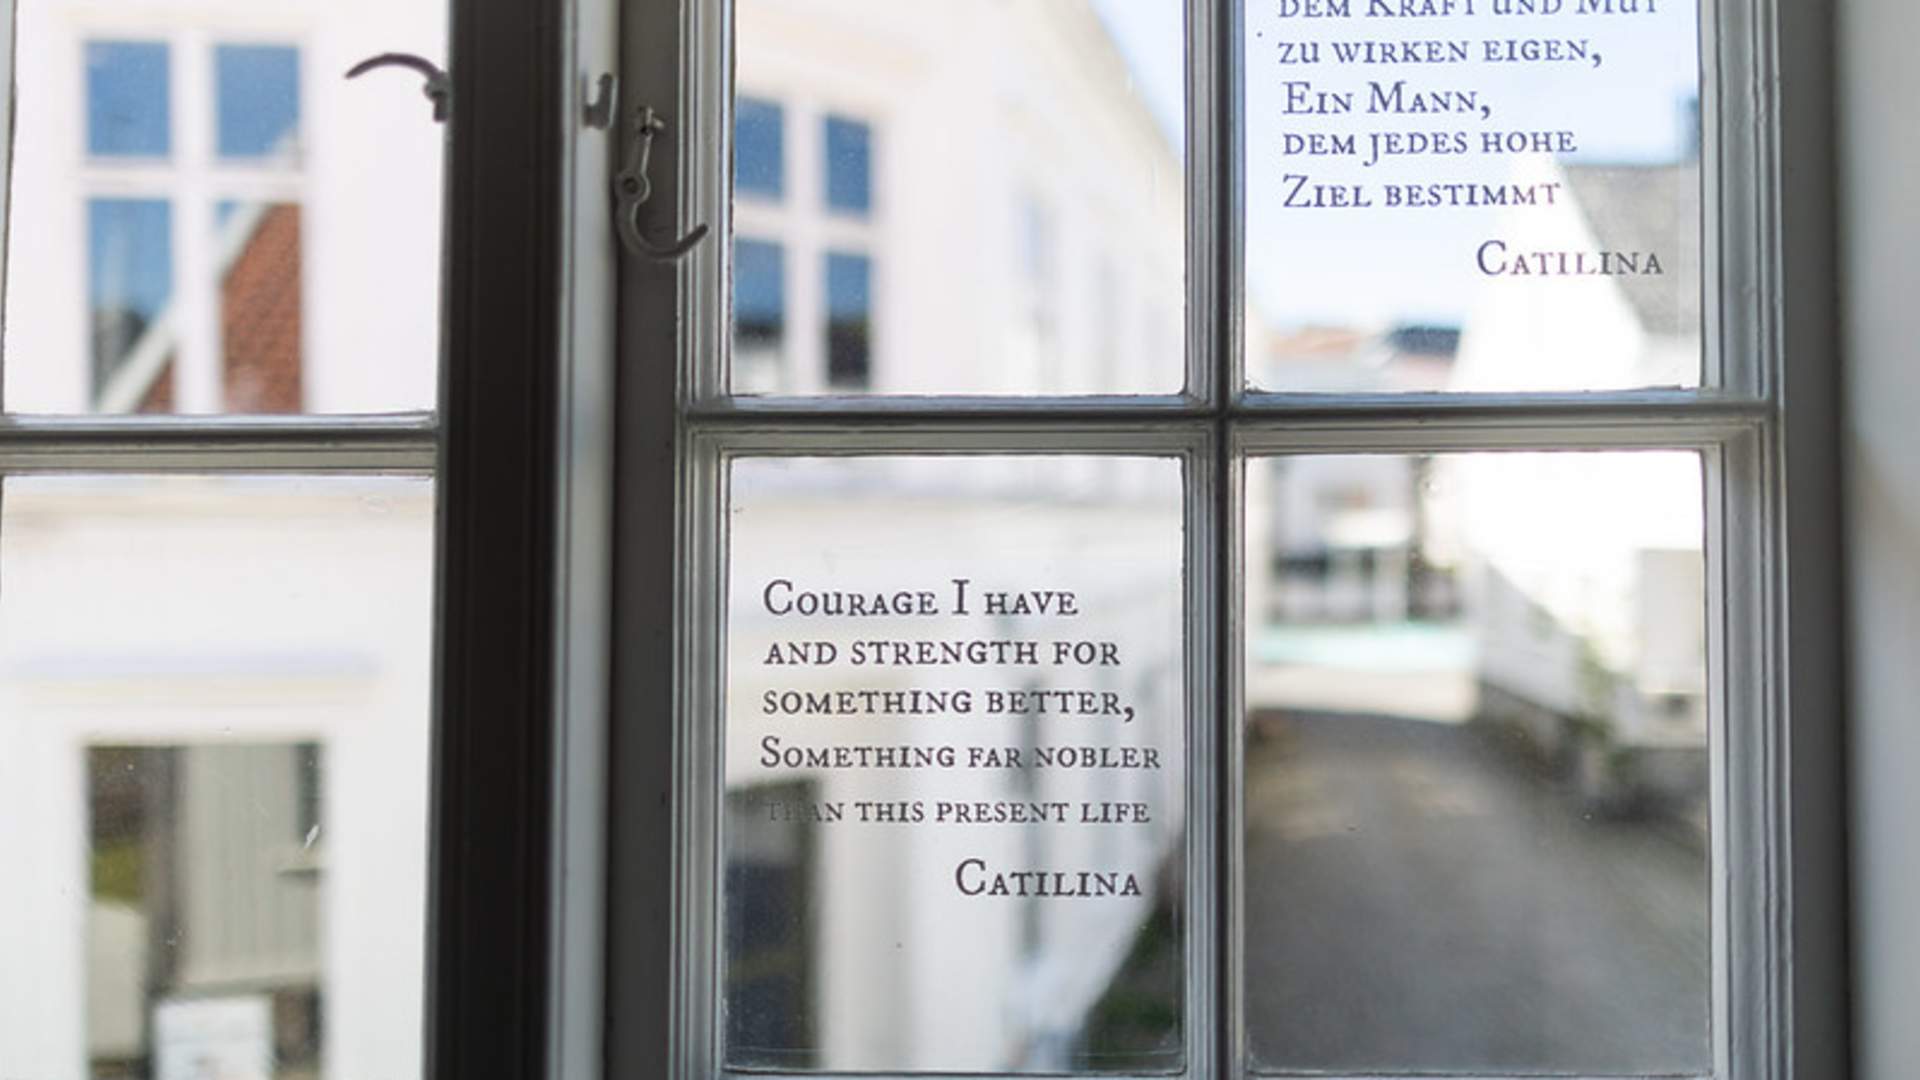 dem Kraft und Mut
zu wirken eigen,
Ein Mann,
dem jedes hohe
Ziel bestimmt
Catilina
Courage I have
and strength for
something better,
Something far nobler
than this present life
Catilina